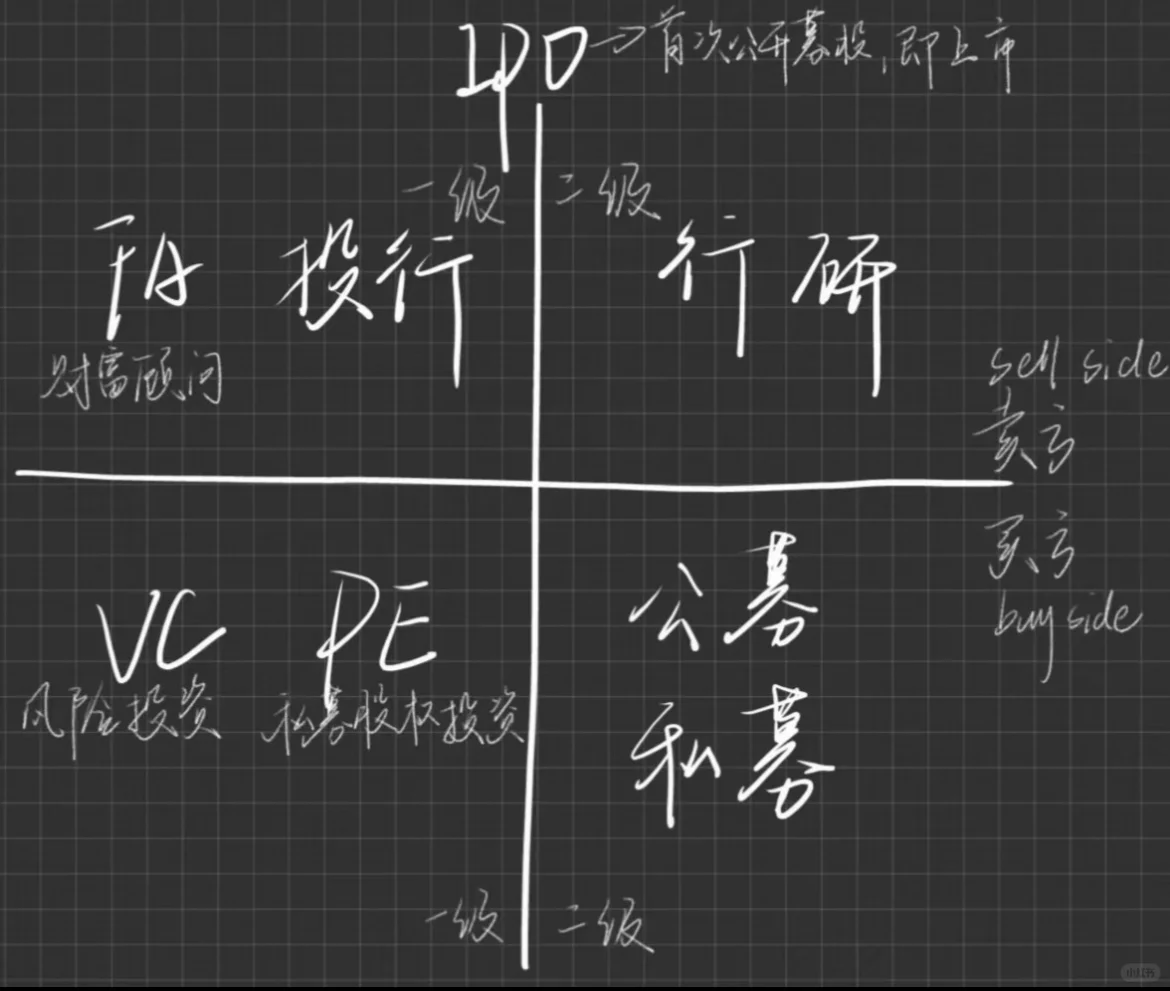 IPO→首次公开募股,即上市
一级 二级
FA 投行 行研
财富顾问
sell side
卖方
买方
buy side
VC PE 公募
风险投资 私募股权投资
私募
一级 二级
小红书